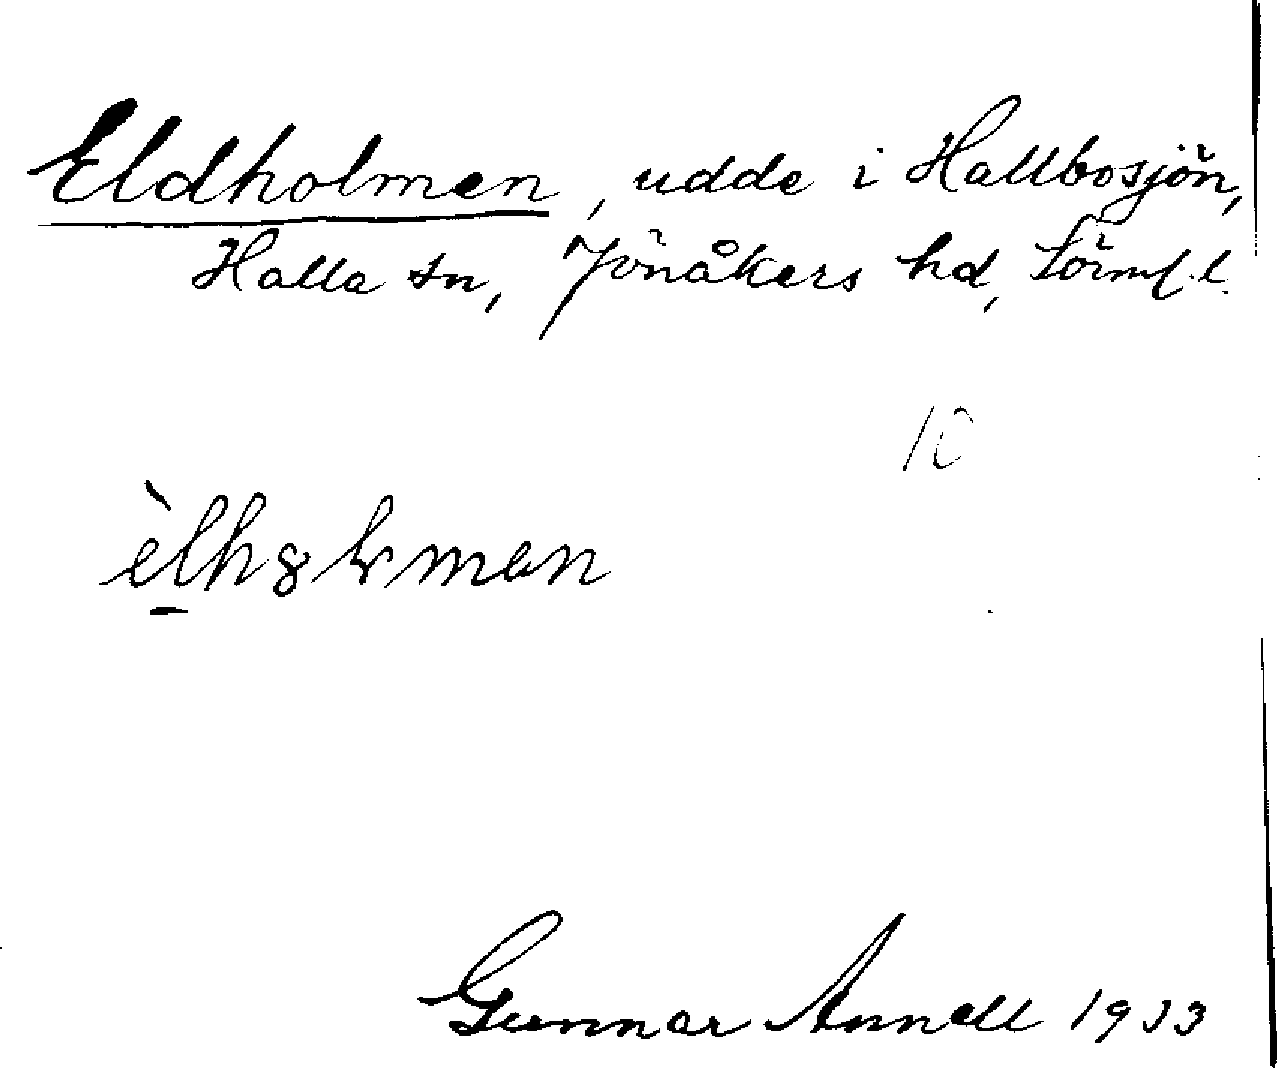 Eldholmen, udde i Hallbosjön,
Halla sn, Jönåkers hd, Sörml. l.
10
Gunnar Annell 1933